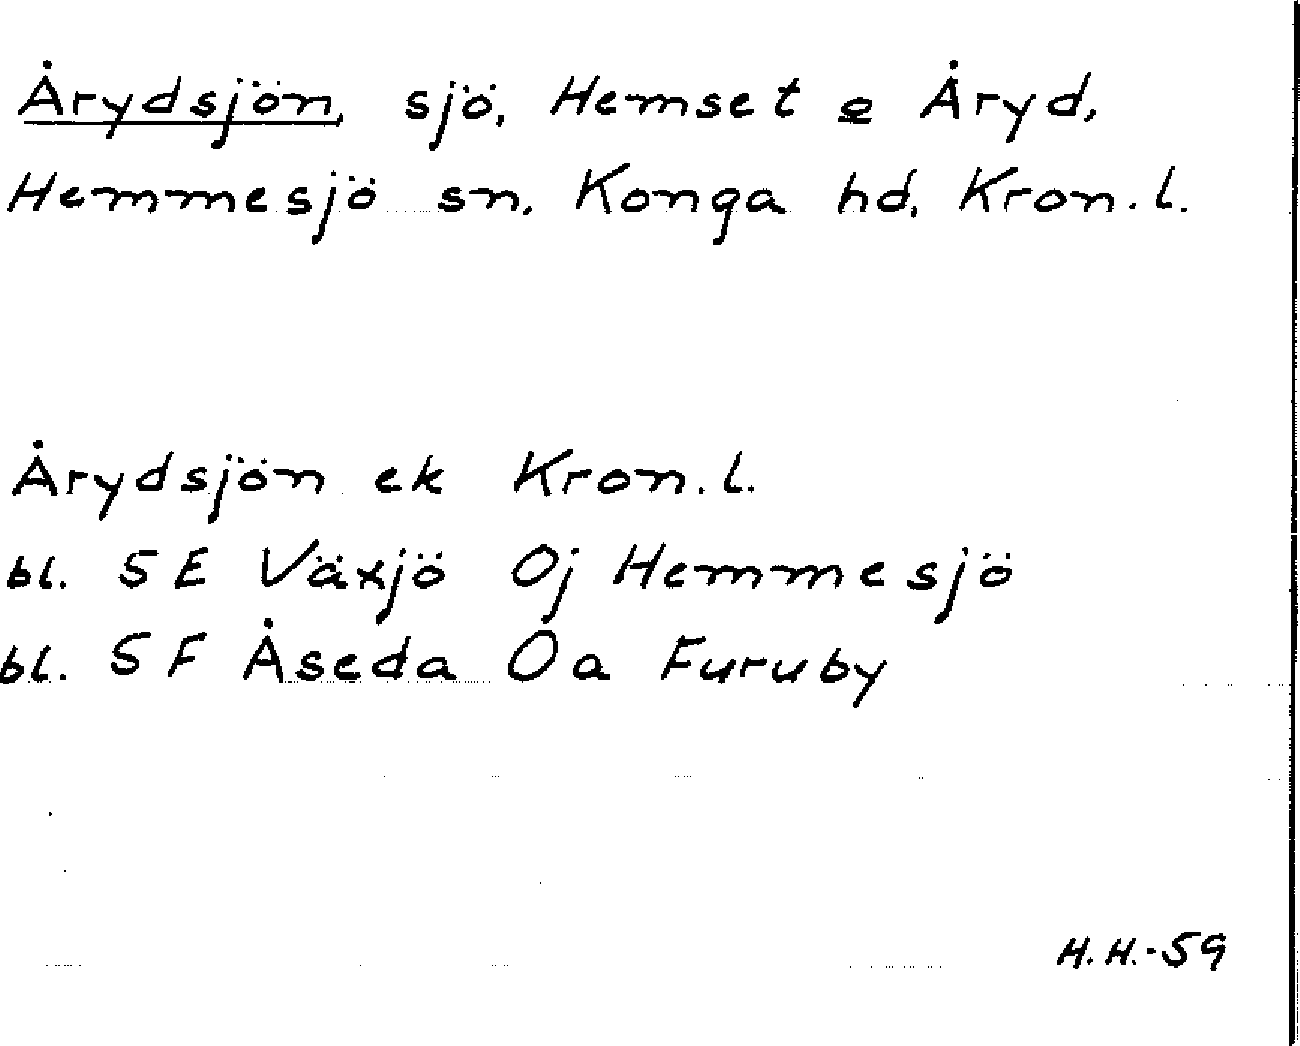 Årydsjön, sjö, Hemset o Åryd,
Hemmesjö sn, Konga hd, Kron. l.
Årydsjön ek Kron. l.
bl. 5 E Växjö Oj Hemmesjö
bl. 5 F Åseda Oa Furuby
H. H. -59